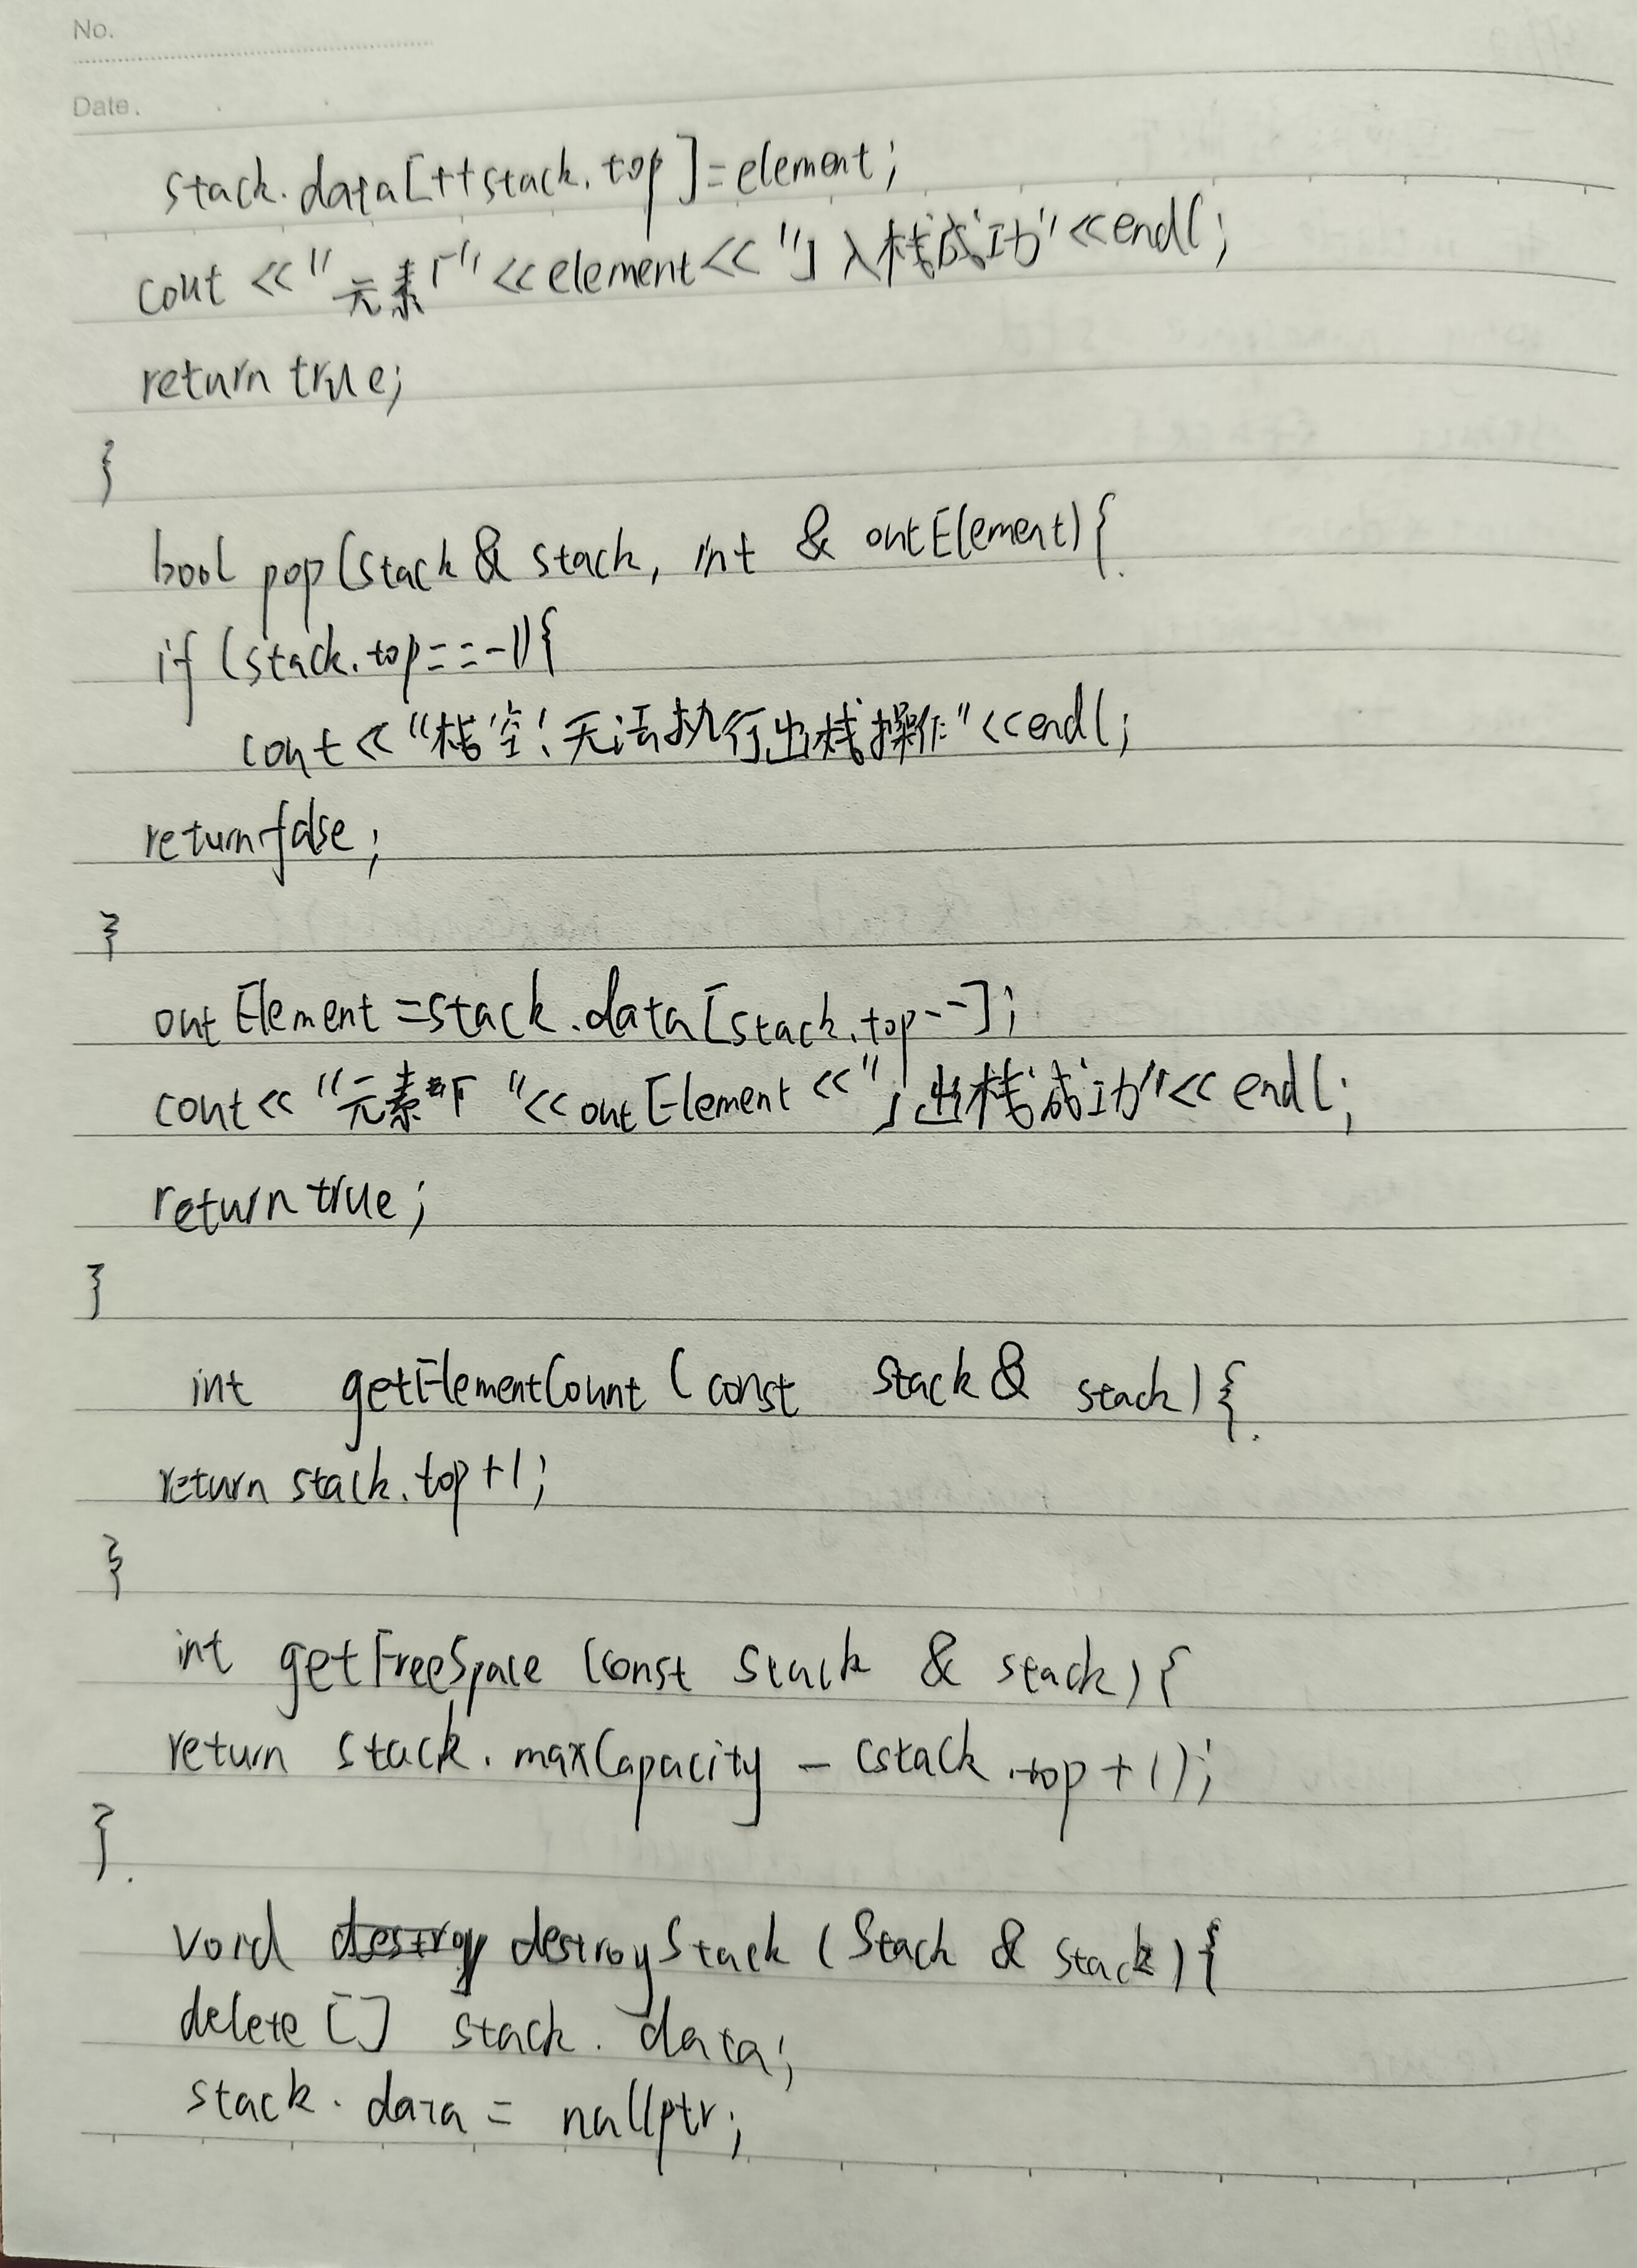 No.
Date.
stack.data[++stack.top]=element;
cout <<"元素「"<<element<<"」入栈成功"<<endl;
return true;
}
bool pop(stack & stack, int & outElement){
if (stack.top==-1){
cout<<"栈空!无法执行出栈操作"<<endl;
return false;
}
outElement=stack.data[stack.top--];
cout<<"元素「"<<outElement<<"」出栈成功"<<endl;
return true;
}
int getElementCount (const Stack & stack){
return stack.top+1;
}
int getFreeSpace (const Stack & stack){
return stack.maxCapacity - (stack.top+1);
}
void destroy destroyStack (Stack & stack){
delete [] stack.data;
stack.data = nullptr;